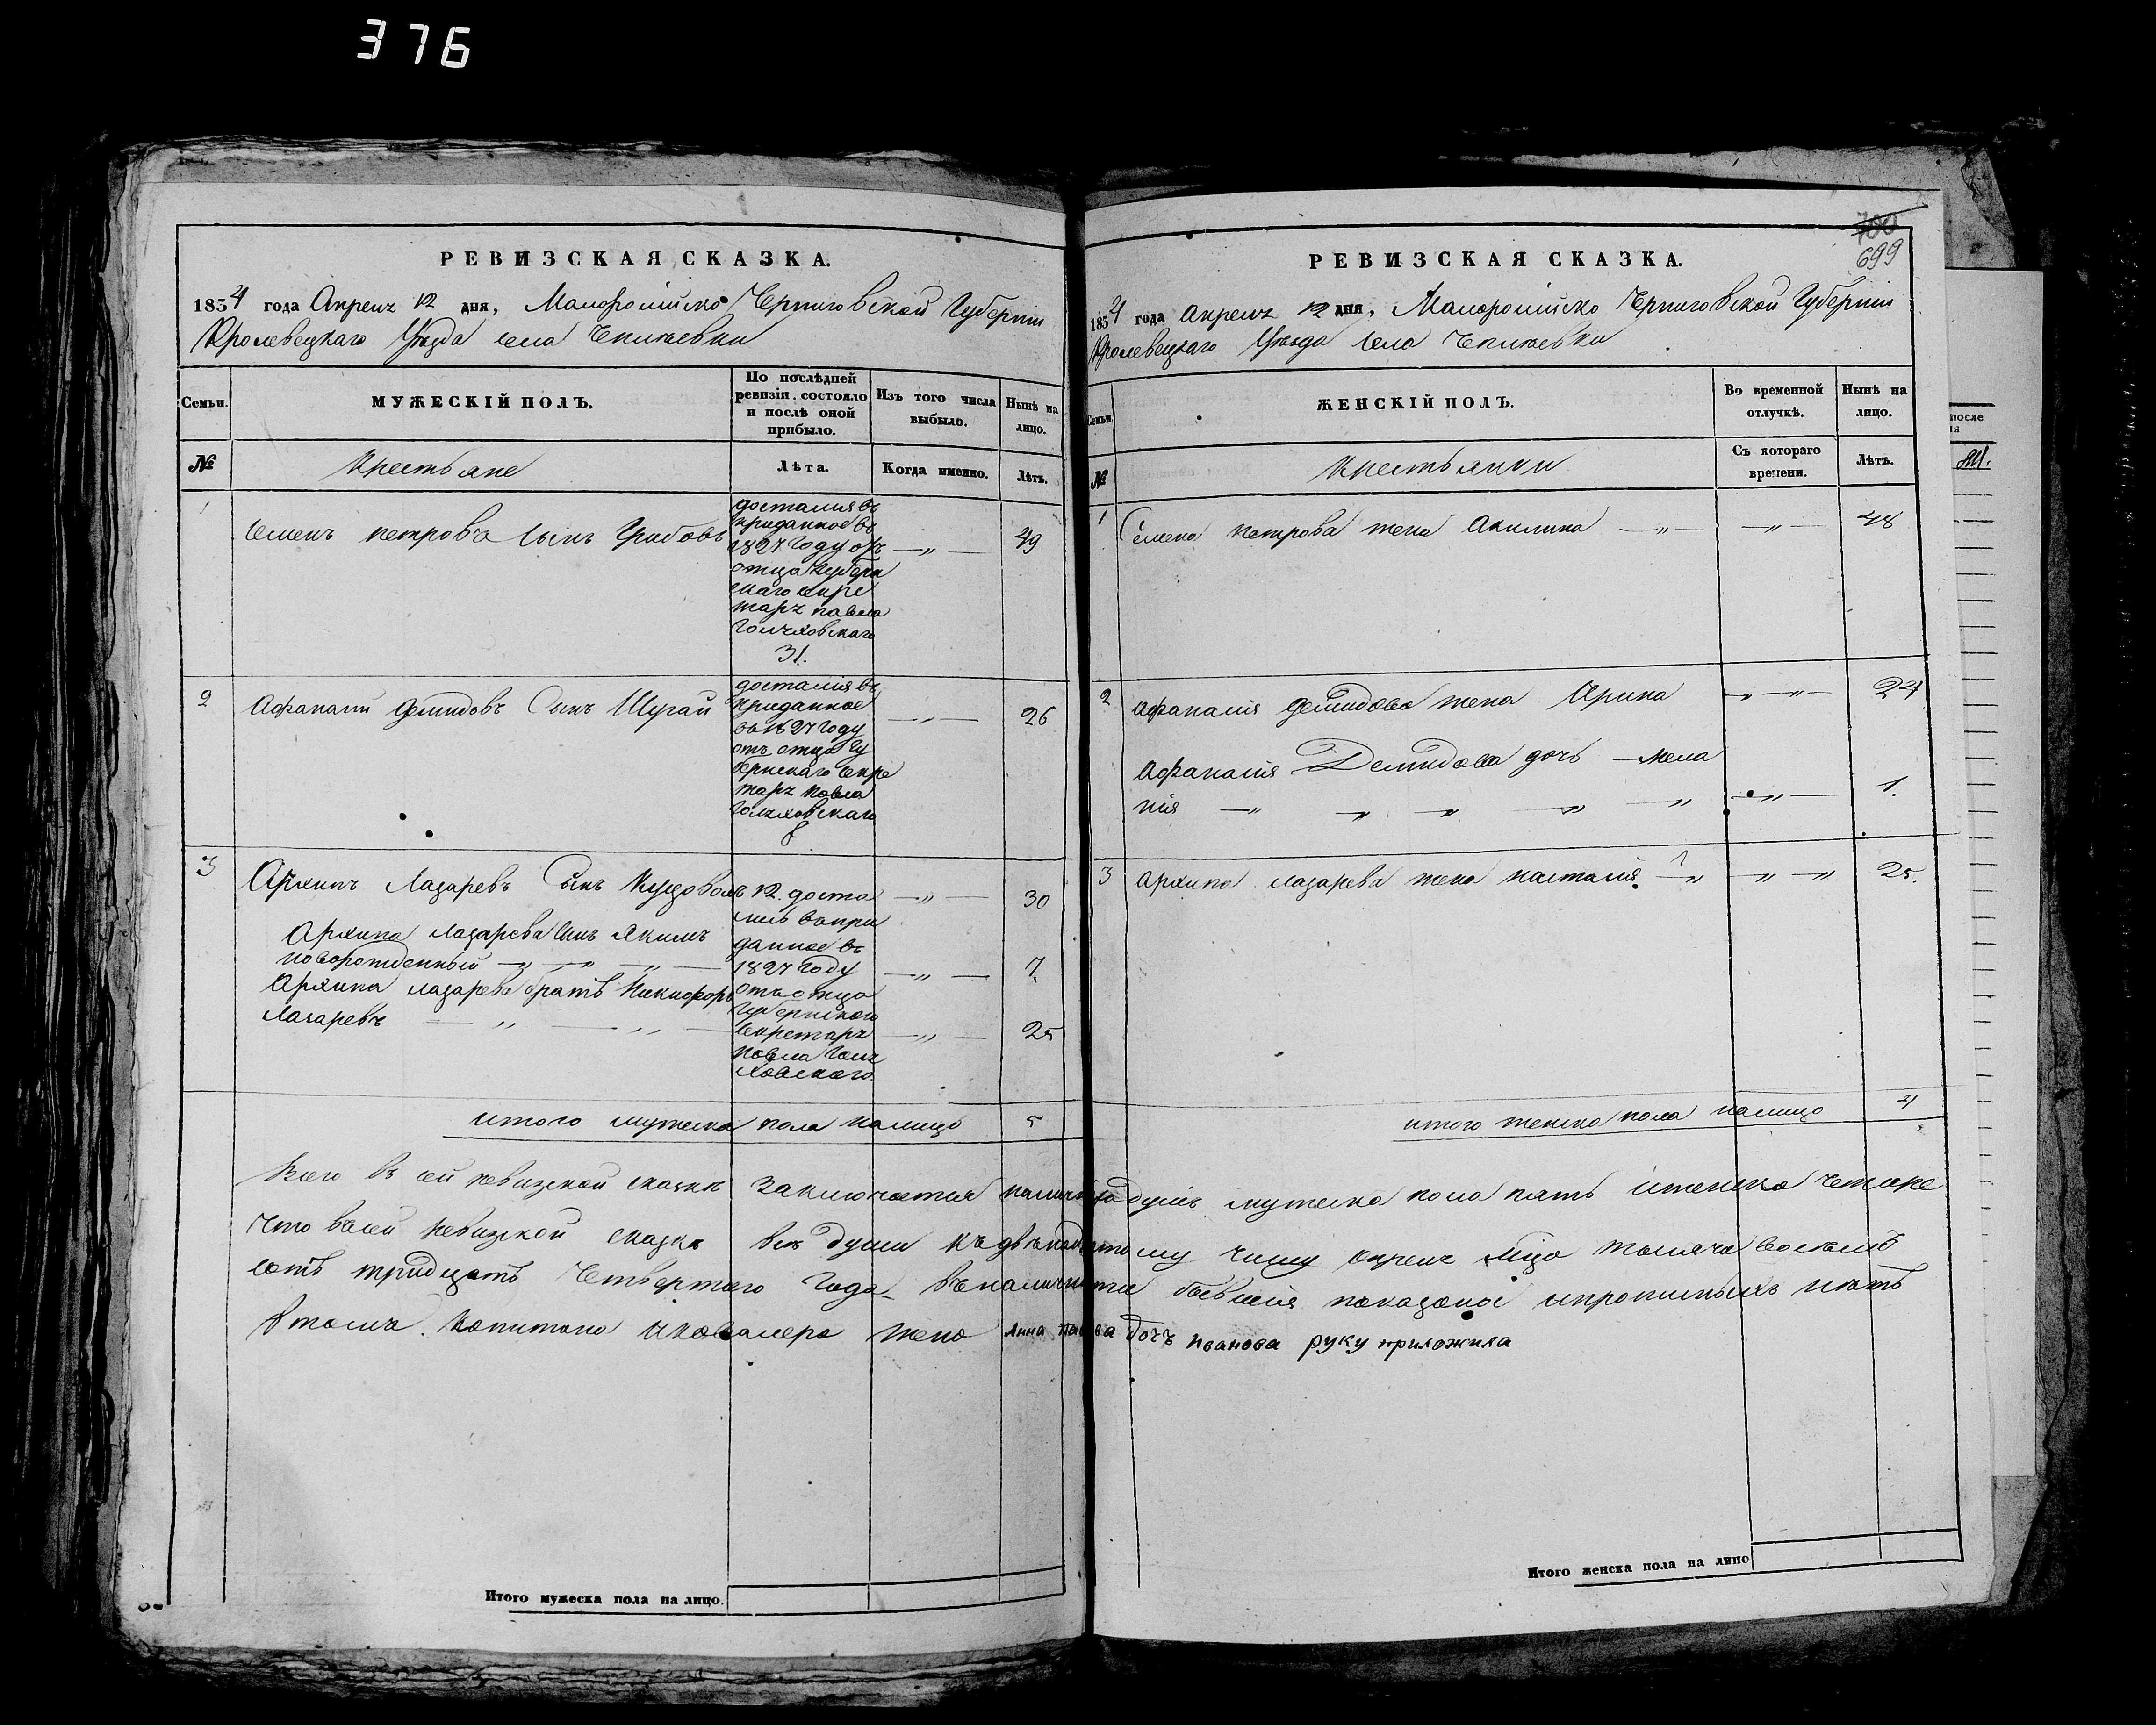 376
РЕВИЗСКАЯ СКАЗКА.
1834 года Апреля 12 дня, Малоросійско Черниговской Губерніи
Кролевецкаго Уѣзда села
Семьи.
МУЖЕСКІЙ ПОЛЪ.
По послѣдней ревизіи состояло и послѣ оной прибыло.
Изъ того числа выбыло.
Нынѣ на лицо.
№
Крестьяне
Лѣта.
Когда именно.
Лѣтъ.
1
Семенъ Петровъ Сынъ Грибовъ
досталися въ
приданное въ
1827 Году отъ
отца Губерн
скаго Секре
таря павла
31.
49
2
Афанасій Демидовъ Сынъ Шугай
досталися въ
приданное
въ 1827 Году
отъ отца Гу
бернскаго Секре
таря павла
8
26
3
Архипъ Лазаревъ Сынъ
12. доста
лись въ при
данное въ
1827 Году
отъ отца
Губернского
Секретаря
павла
30
Архипа Лазарева Сынъ Якимъ
новорожденный
7.
Архипа Лазарева братъ Никифоръ
Лазаревъ
25
итого мужеска пола налицо 5
Итого мужеска пола на лицо.
700
699
РЕВИЗСКАЯ СКАЗКА.
1834 года Апреля 12 дня, Малоросійско Черниговской Губерніи
Кролевецкаго Уѣзда Села
Семьи.
ЖЕНСКІЙ ПОЛЪ.
Во временной отлучкѣ.
Нынѣ на лицо.
№
Крестьянки
Съ котораго времени.
Лѣтъ.
1
Семена петрова жена Акилина
48
2
Афанасія Демидова жена Ирина
24
Афанасія Демидова дочь Мела
нія
1.
3
Архипа Лазарева жена настасія
25.
итого женска пола налицо 4
Всего въ сей ревизской сказкѣ заключается душъ мужеска пола пять иженска четыре
Что въсей Ревизкой сказкѣ всѣ души къ двѣнадцатому числу Апреля мѣца тысяча восемъ
сотъ тридцать Четвертаго Года въналичности бывшія показаны ипрописныхъ нѣтъ
втомъ. Капитана икавалера жена Анна дочъ Иванова руку приложила
Итого женска пола на лицо
после